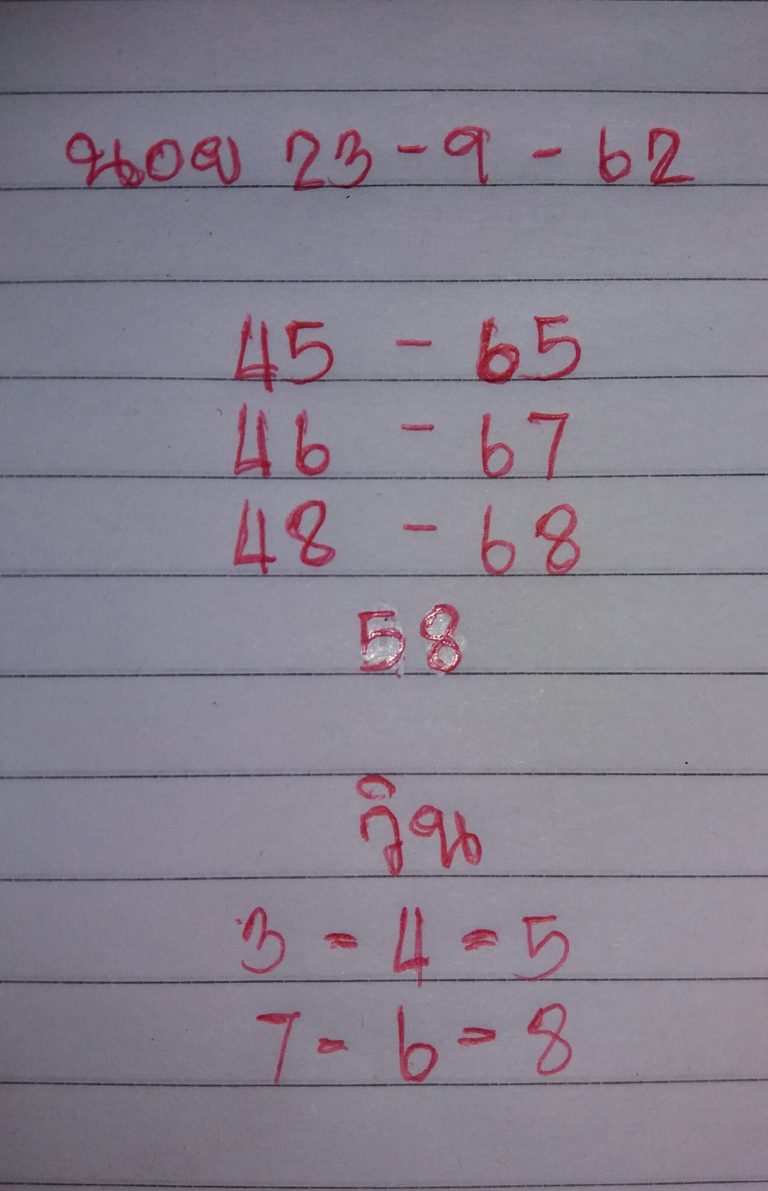 นอย 23-9-62
45 - 65
46 - 67
48 - 68
58
วิน
3 - 4 - 5
7 - 6 - 8